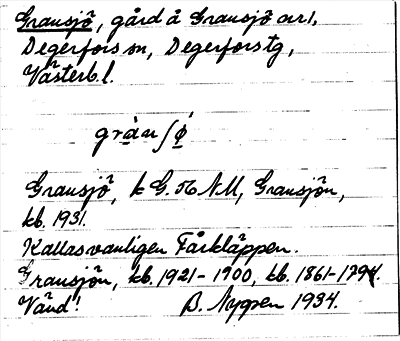 Gransjö, gård å Gransjö orrl,
Degerfors sn, Degerfors tg,
Västerb.l.
grànʃø̀
Gransjö, k G. NM, Gransjön,
kb. 1931.
Kallas vanligen Fårkläppen.
Gransjön, kb. 1921-1900, kb. 1861-1794.
Vänd! B. Nygren 1934.